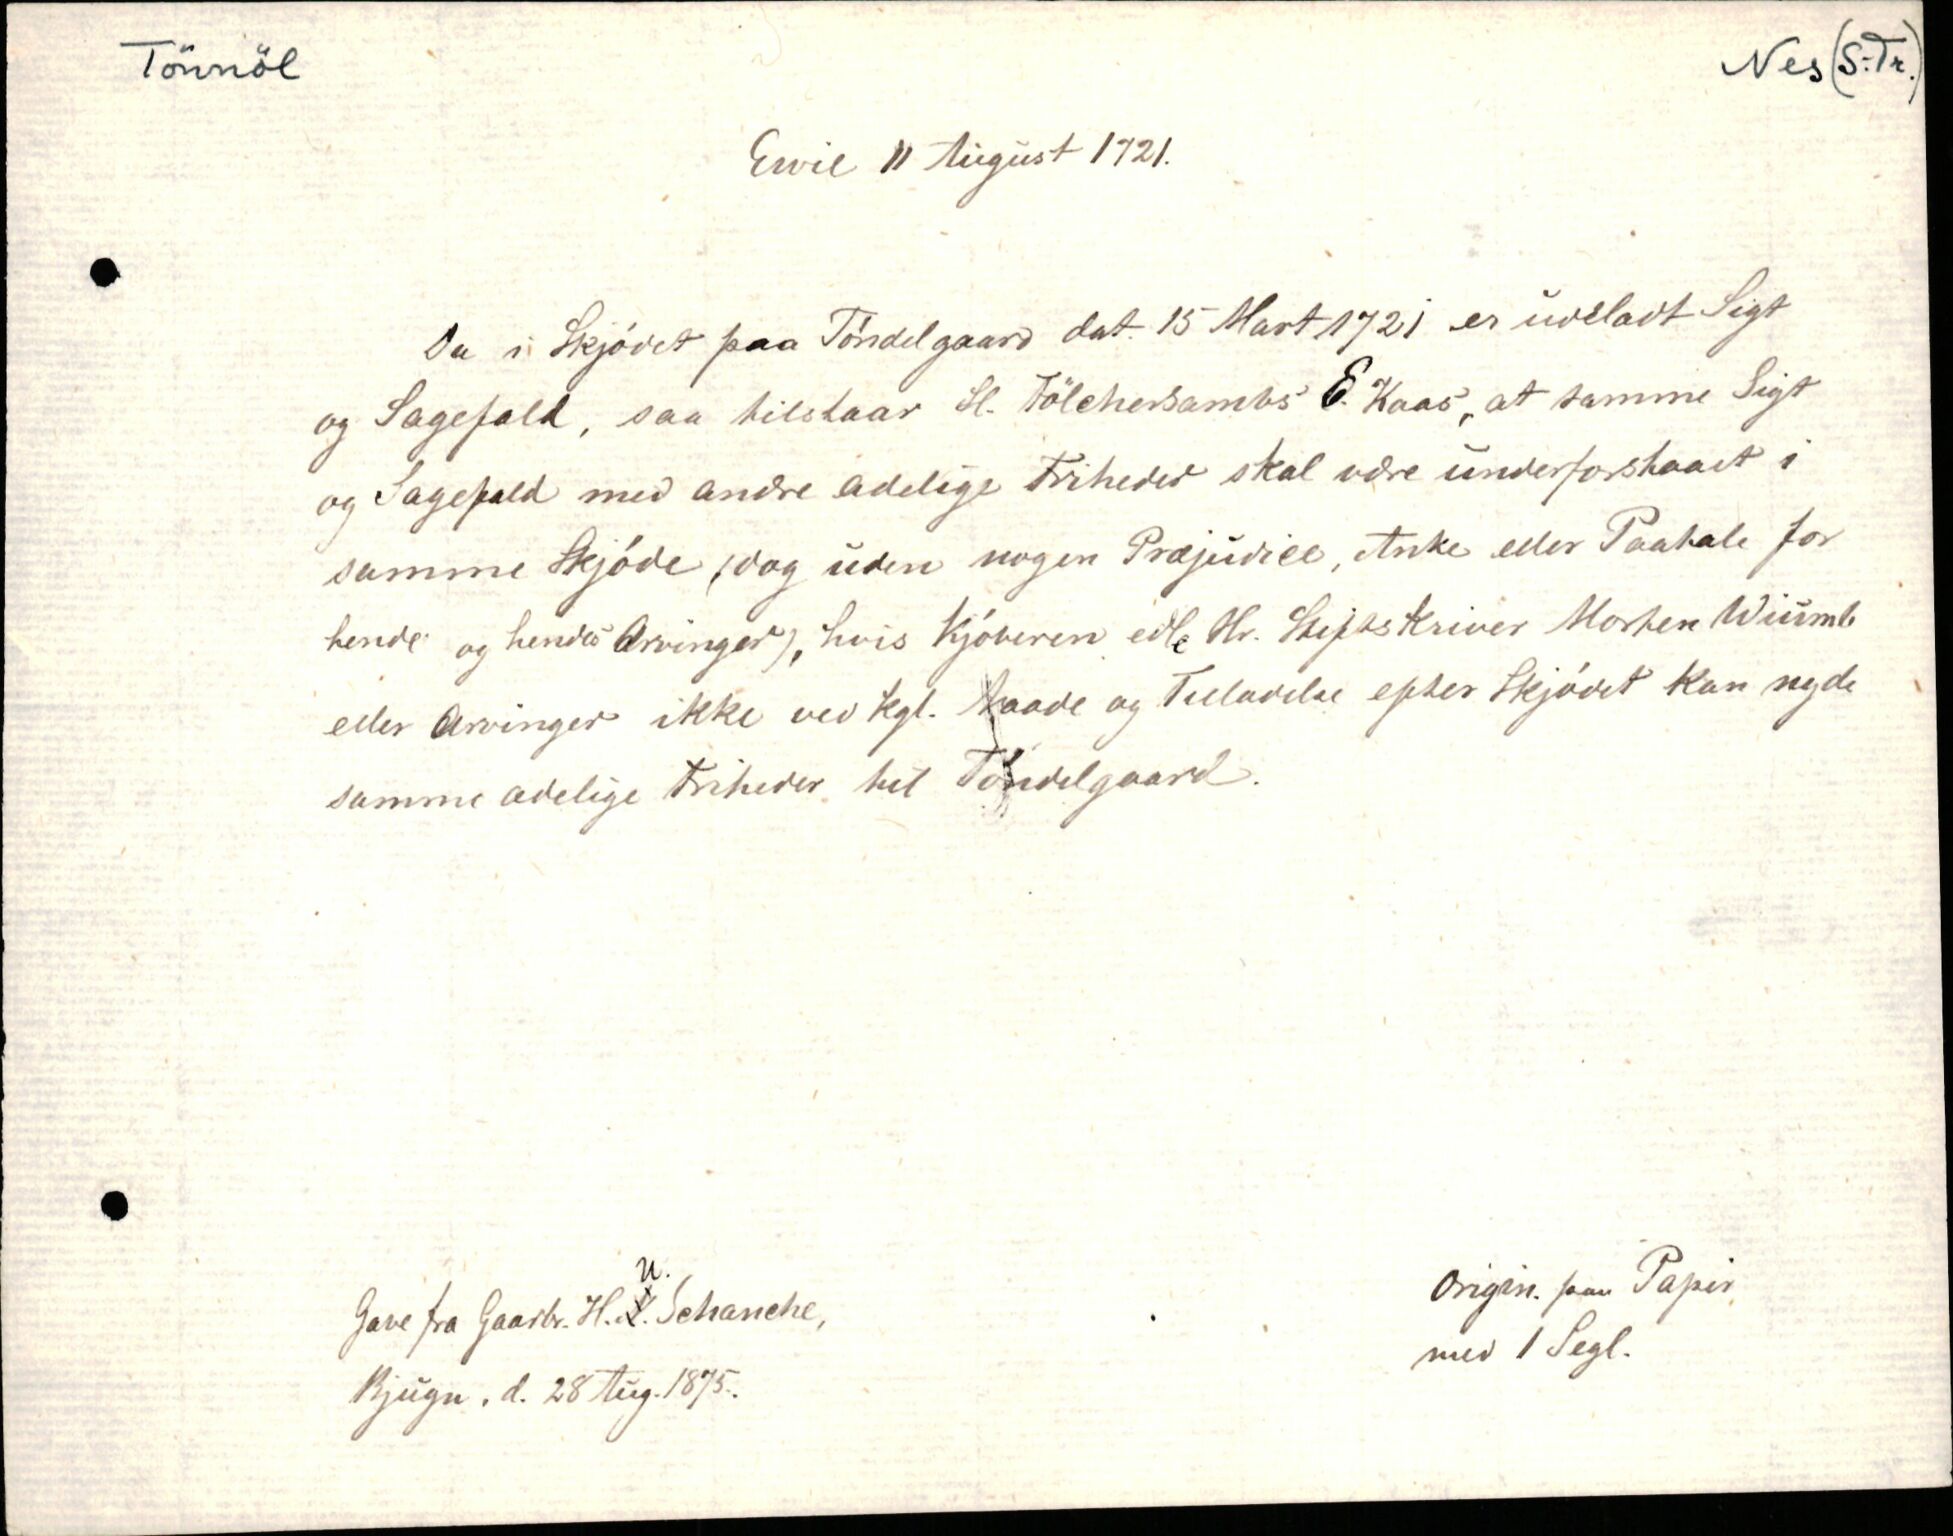 Tönnöl
Nes (S-Tr.)
Ervic 11 August 1721.
Da i Skjödet paa Töndelgaard dat. 15 Mart 1721 er udeladt Sigt
og Sagefald, saa tilstaar Sl. Fölchersambs E. Kaas, at samme Sigt
og Sagefald med andre adelige Friheder skal være underforstaaet i
samme Skjöde (dog uden nogen Præjudice, Anke eller Paatale for
hende og hendes Arvinger), hvis Kjöberen edle Hr. Stiftskriver Morten Wiumb
eller Arvinger ikke ved kgl. Naade og Tilladelse efter Skjödet kan nyde
samme adelige Friheder til Töndelgaard.
Gave fra Gaardbr. H. U. Schanche,
Bjugn. d. 28 Aug. 1875.
Origin. paa Papir
med 1 Segl.